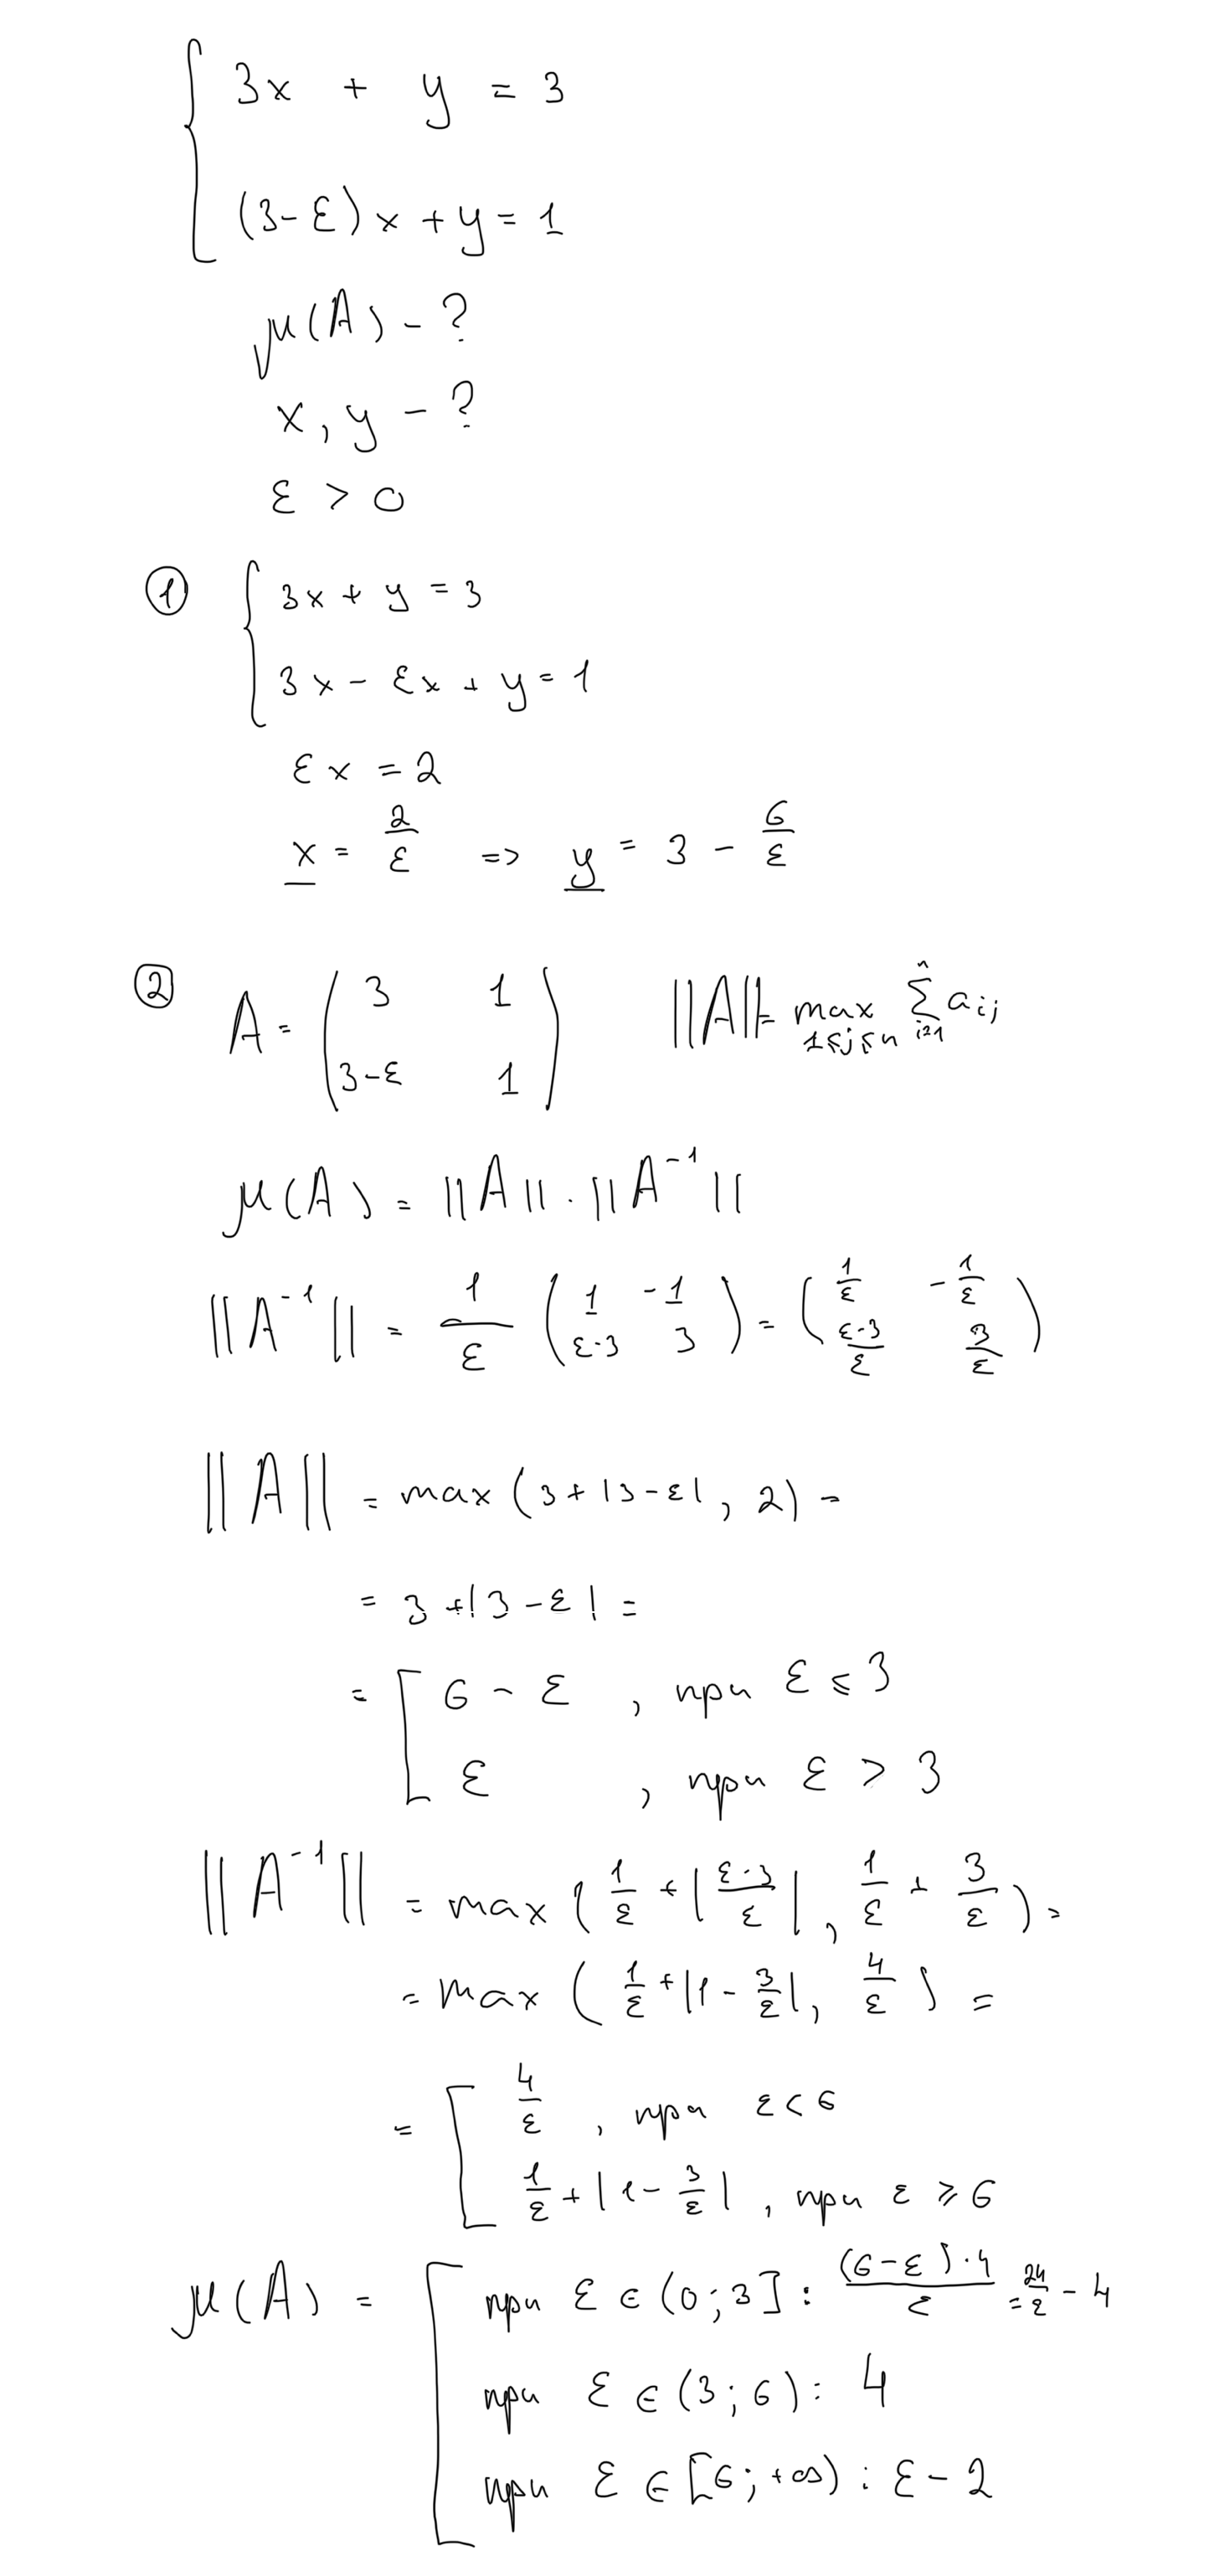 { 3x + y = 3
(3-ε)x + y = 1
μ(A) - ?
x, y - ?
ε > 0
① { 3x + y = 3
3x - εx + y = 1
εx = 2
x = 2/ε => y = 3 - 6/ε
② A = ( 3 1 ; 3-ε 1 ) ||A|| = max_{1≤j≤n} Σ_{i=1}^{n} a_{ij}
μ(A) = ||A|| · ||A⁻¹||
||A⁻¹|| = 1/ε ( 1 -1 ; ε-3 3 ) = ( 1/ε -1/ε ; (ε-3)/ε 3/ε )
||A|| = max (3 + |3-ε|, 2) =
= 3 + |3-ε| =
= [ 6 - ε , при ε ≤ 3
ε , при ε > 3
||A⁻¹|| = max ( 1/ε + |(ε-3)/ε|, 1/ε + 3/ε ) =
= max ( 1/ε + |1 - 3/ε|, 4/ε ) =
= [ 4/ε , при ε < 6
1/ε + |1 - 3/ε| , при ε ≥ 6
μ(A) = [ при ε ∈ (0; 3] : (6-ε)·4/ε = 24/ε - 4
при ε ∈ (3; 6) : 4
при ε ∈ [6; +∞) : ε - 2